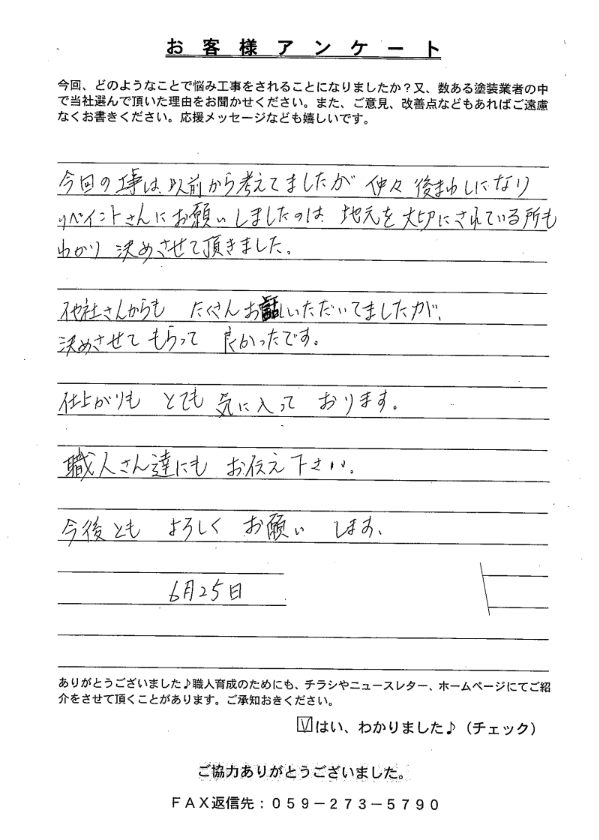 お客様アンケート
今回、どのようなことで悩み工事をされることになりましたか？又、数ある塗装業者の中
で当社選んで頂いた理由をお聞かせください。また、ご意見、改善点などもあればご遠慮
なくお書きください。応援メッセージなども嬉しいです。
今回の工事は、以前から考えてましたが 仲々 後まわしになり
リペイントさんにお願いしましたのは、地元を大切にされている所も
わかり 決めさせて頂きました。
他社さんからも たくさんお話しいただいてましたが、
決めさせて もらって 良かったです。
仕上がりも とても 気に入って おります。
職人さん達にも お伝え下さい。
今後とも よろしく お願い します、
6月25日
ありがとうございました♪職人育成のためにも、チラシやニュースレター、ホームページにてご紹
介をさせて頂くことがあります。ご承知おきください。
☑はい、わかりました♪（チェック）
ご協力ありがとうございました。
ＦＡＸ返信先：０５９－２７３－５７９０